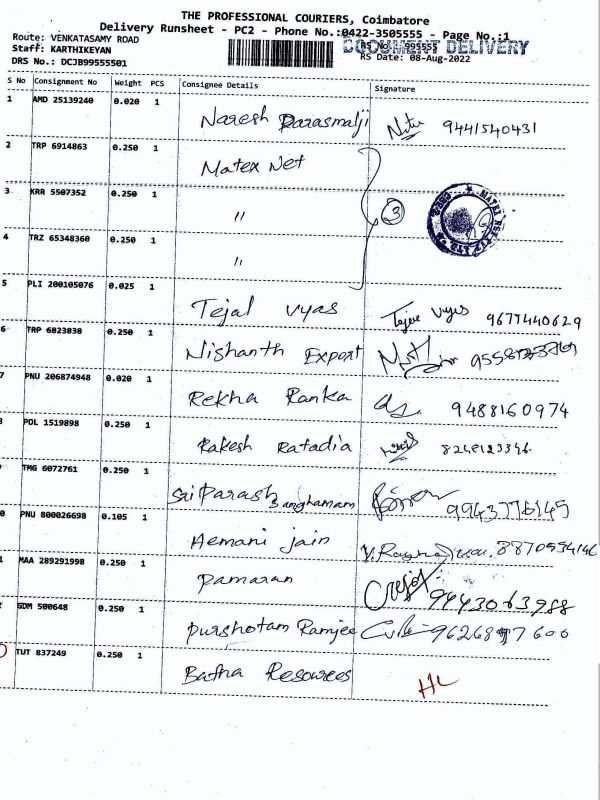 THE PROFESSIONAL COURIERS, Coimbatore
Delivery Runsheet - PC2 - Phone No.:0422-3505555 - Page No.:1
Route: VENKATASAMY ROAD
995555
DOCUMENT DELIVERY
Staff: KARTHIKEYAN
RS Date: 08-Aug-2022
DRS No.: DCJB99555501
S No Consignment No Weight PCS Consignee Details Signature
1 AMD 25139240 0.020 1 Naresh Parasmalji 9441540431
2 TRP 6914863 0.250 1 Matex Net
3 KRR 5507352 0.250 1 〃 3
4 TRZ 65348360 0.250 1 〃
5 PLI 200105076 0.025 1 Tejal Vyas Tejal Vyas 9677440629
6 TRP 6823838 0.250 1 Nishanth Export
7 PNU 206874948 0.020 1 Rekha Ranka 9488160974
POL 1519898 0.250 1 Rakesh Ratadia
TMG 6072761 0.250 1 Sai Parash 9943776145
0 PNU 800026698 0.105 1 Hemani Jain 8870954146
1 MAA 289291998 0.250 1 Pamaran 9443063988
2 GDM 500648 0.250 1 Purshotam Ramjee
TUT 837249 0.250 1 Bafna Resources